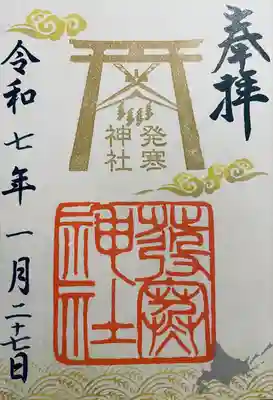 奉拝
発寒
神社
発寒
神社
令和七年一月二十七日